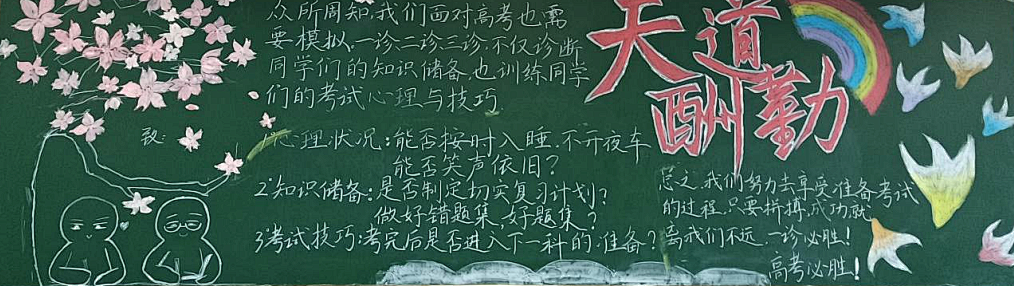 众所周知，我们面对高考也需
要模拟，一诊、二诊、三诊，不仅诊断
同学们的知识储备，也训练同学
们的考试心理与技巧
天道
酬勤
心理状况：能否按时入睡，不开夜车
能否笑声依旧？
2.知识储备：是否制定切实复习计划？
做好错题集，好题集？
3.考试技巧：考完后是否进入下一科的准备？
总之，我们努力去享受准备考试
的过程，只要拼搏，成功就
离我们不远，一诊必胜！
高考必胜！